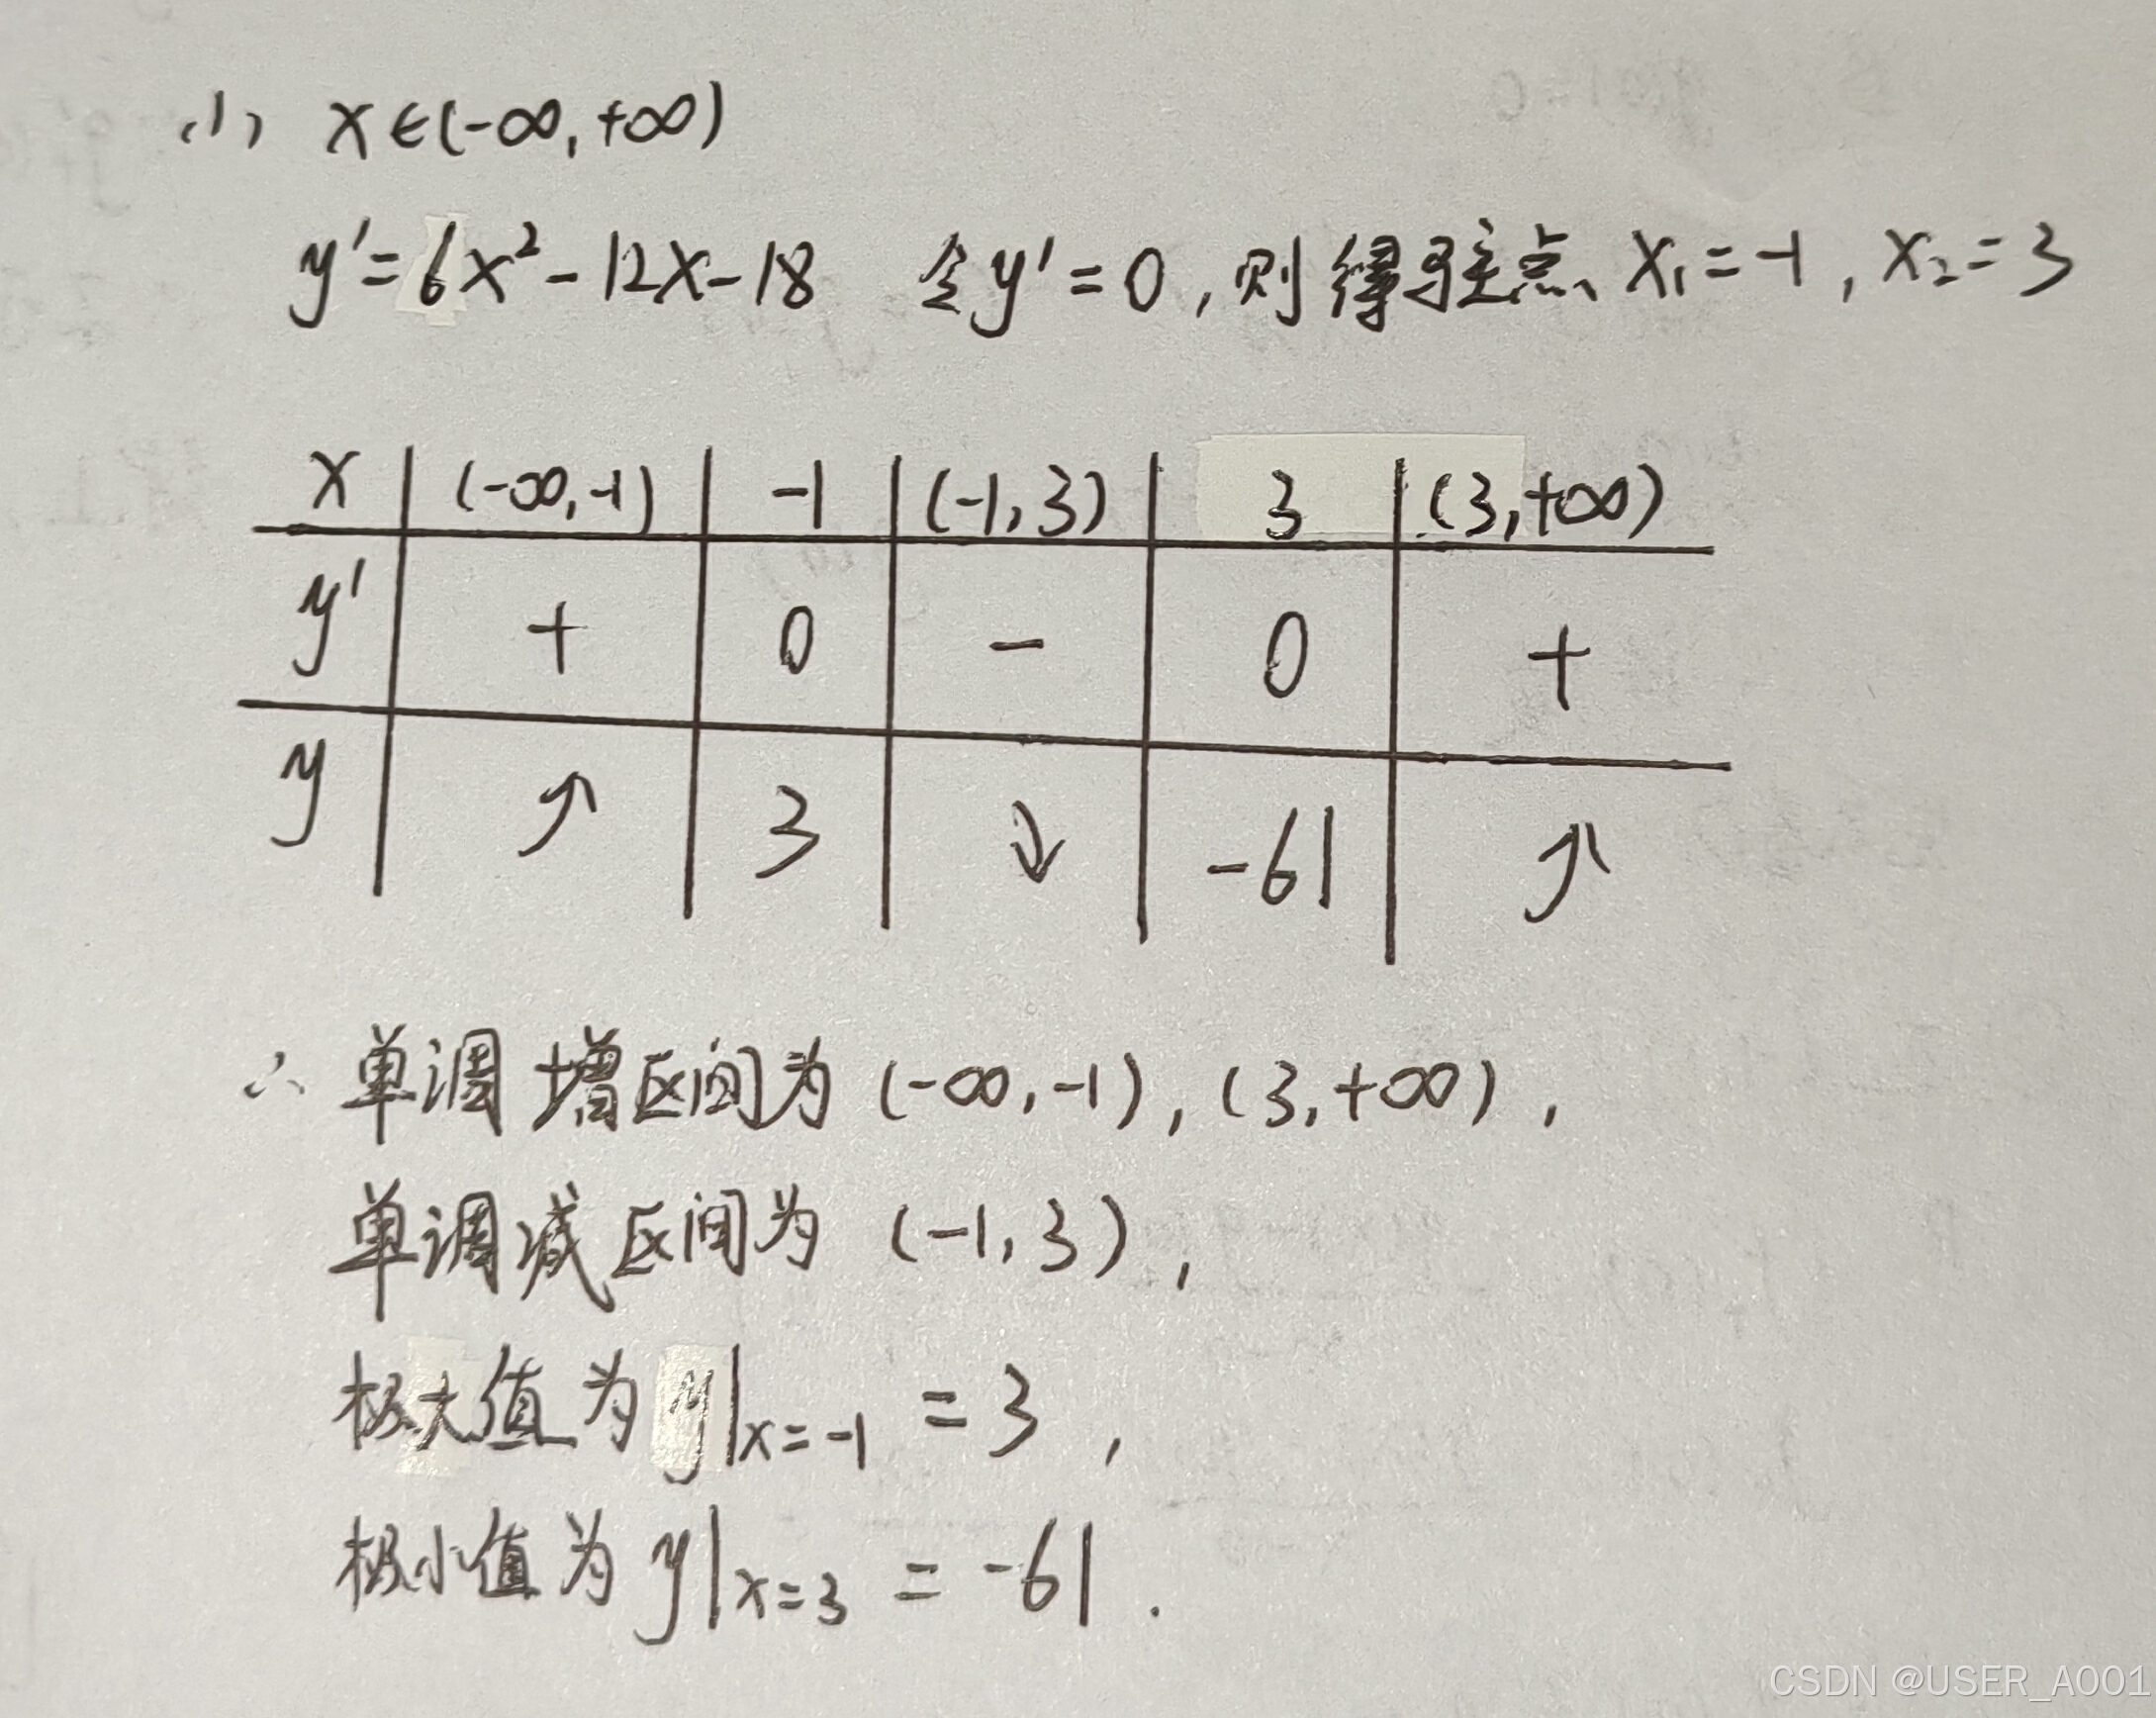 (1) x∈(-∞,+∞)
y'=6x²-12x-18 令y'=0,则得驻点 x₁=-1,x₂=3
x (-∞,-1) -1 (-1,3) 3 (3,+∞)
y' + 0 - 0 +
y ↗ 3 ↘ -61 ↗
∴ 单调增区间为 (-∞,-1),(3,+∞),
单调减区间为 (-1,3),
极大值为 y|x=-1 = 3,
极小值为 y|x=3 = -61.
CSDN @USER_A001